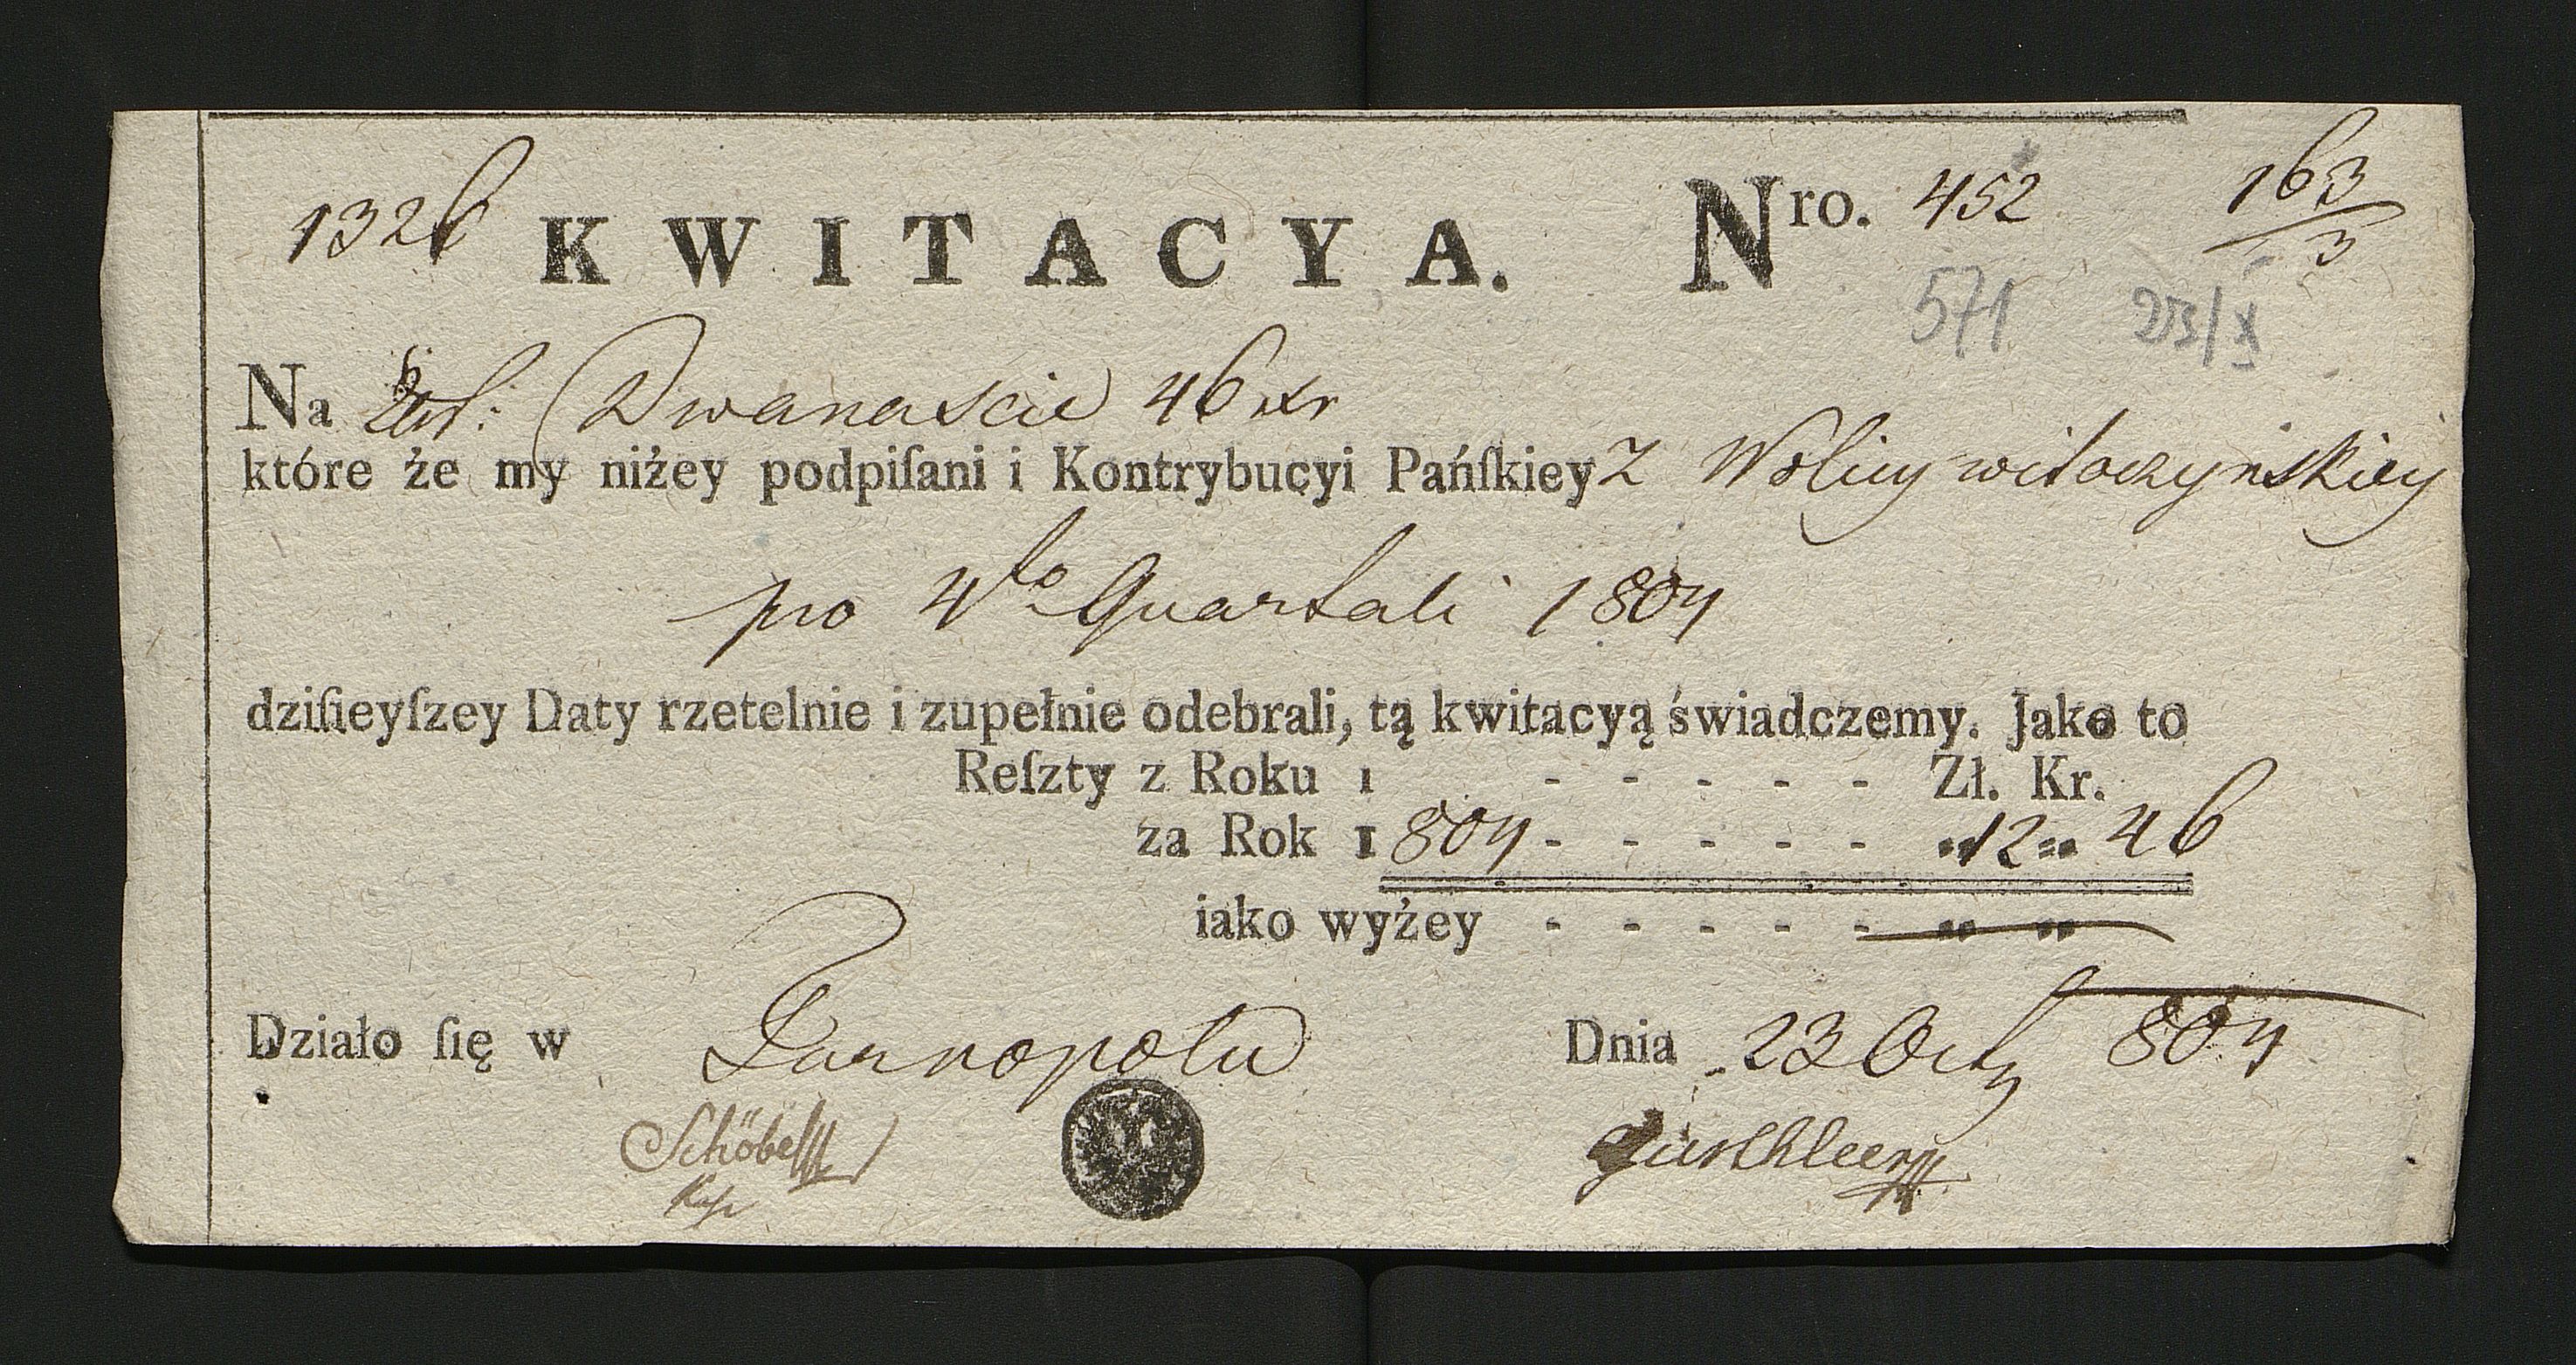 1326 KWITACYA. Nro. 452 163/3
571 23/X
Na Dwanascie 46 xr
które że my niżey podpiſani i Kontrybucyi Pańſkiey z Wolicy
pro 4to Quartali 1804
dziſieyſzey Daty rzetelnie i zupełnie odebrali, tą kwitacyą świadczemy. Jako to
Reſzty z Roku 1 - - - - - Zł. Kr.
za Rok 1804 - - - - - „12 „ 46
iako wyżey - - - - - „ „
Działo ſię w Tarnopolu Dnia 23 804
Schöbel